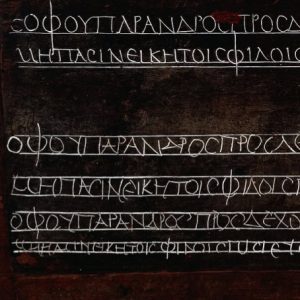 CΟΦΟΥΠΑΡΑΝΔΡΟCΠΡΟCΔ
ΜΗΠΑCΙΝΕΙΚΗΤΟΙCΦΙΛΟΙC
ΟΦΟΥΠΑΡΑΝΔΡΟCΠΡΟCΔΕ
ΜΗΠΑCΙΝΕΙΚΗΤΟΙCΦΙΛΟΙCΠ
ΟΦΟΥΠΑΡΑΝΔΡΟCΠΡΟCΔΕΧΟΥ
ΜΗΠΑCΙΝΕΙΚΗΤΟΙCΦΙΛΟΙCΠΙCΤΕΥ